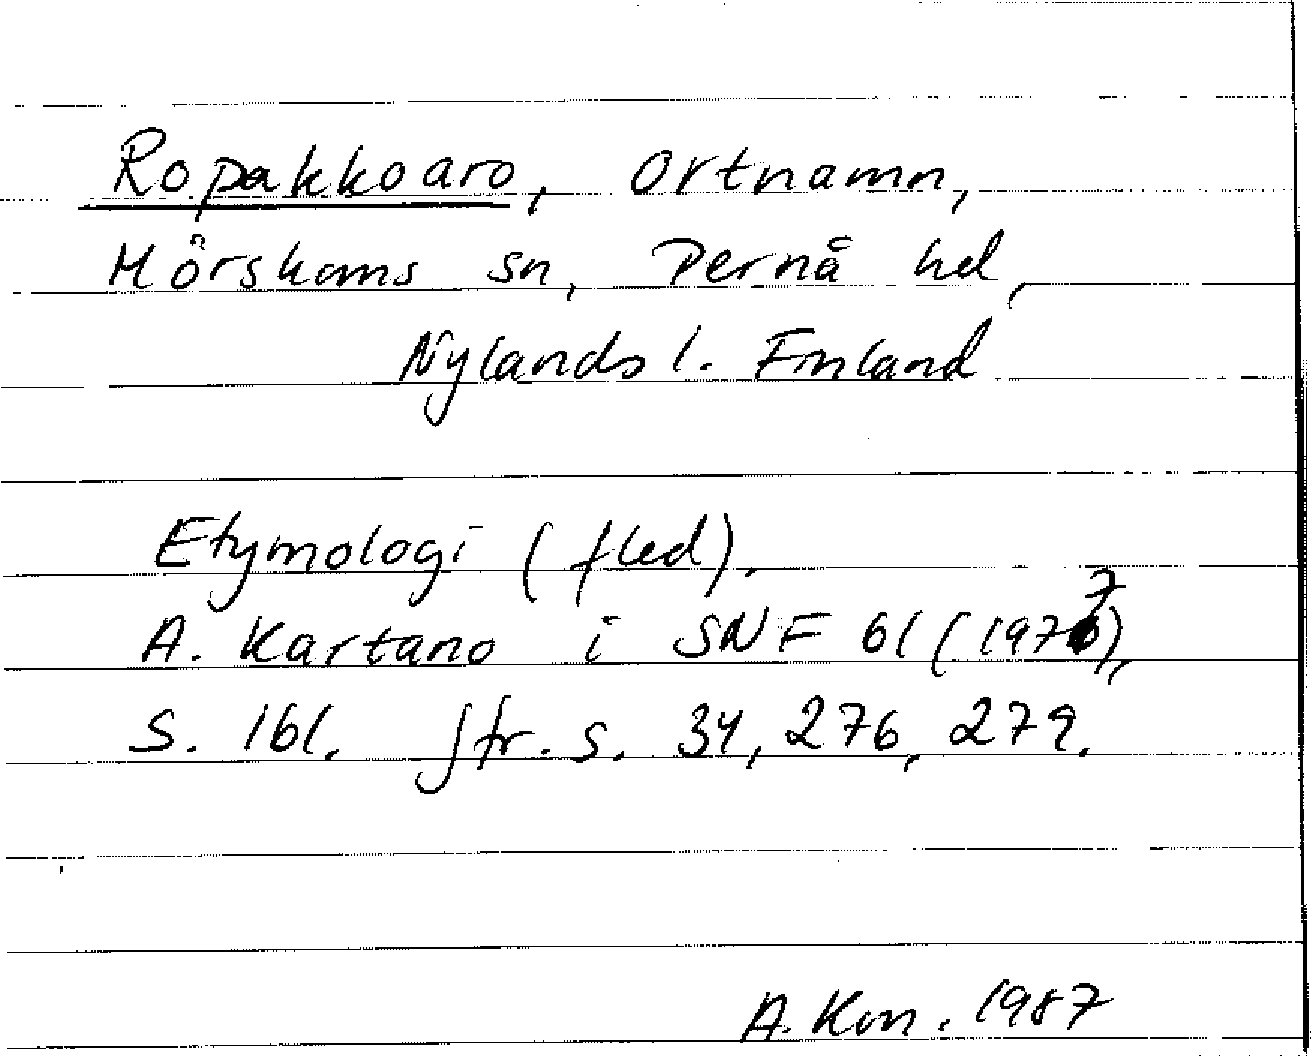 Ropakkoaro, Ortnamn,
Mörskoms sn, Pernå hd,
Nylands l. Finland
Etymologi (fled).
A. Kartano i SNF 61 (1977),
s. 161. Jfr. s. 34, 276, 279.
A. Kon. 1987